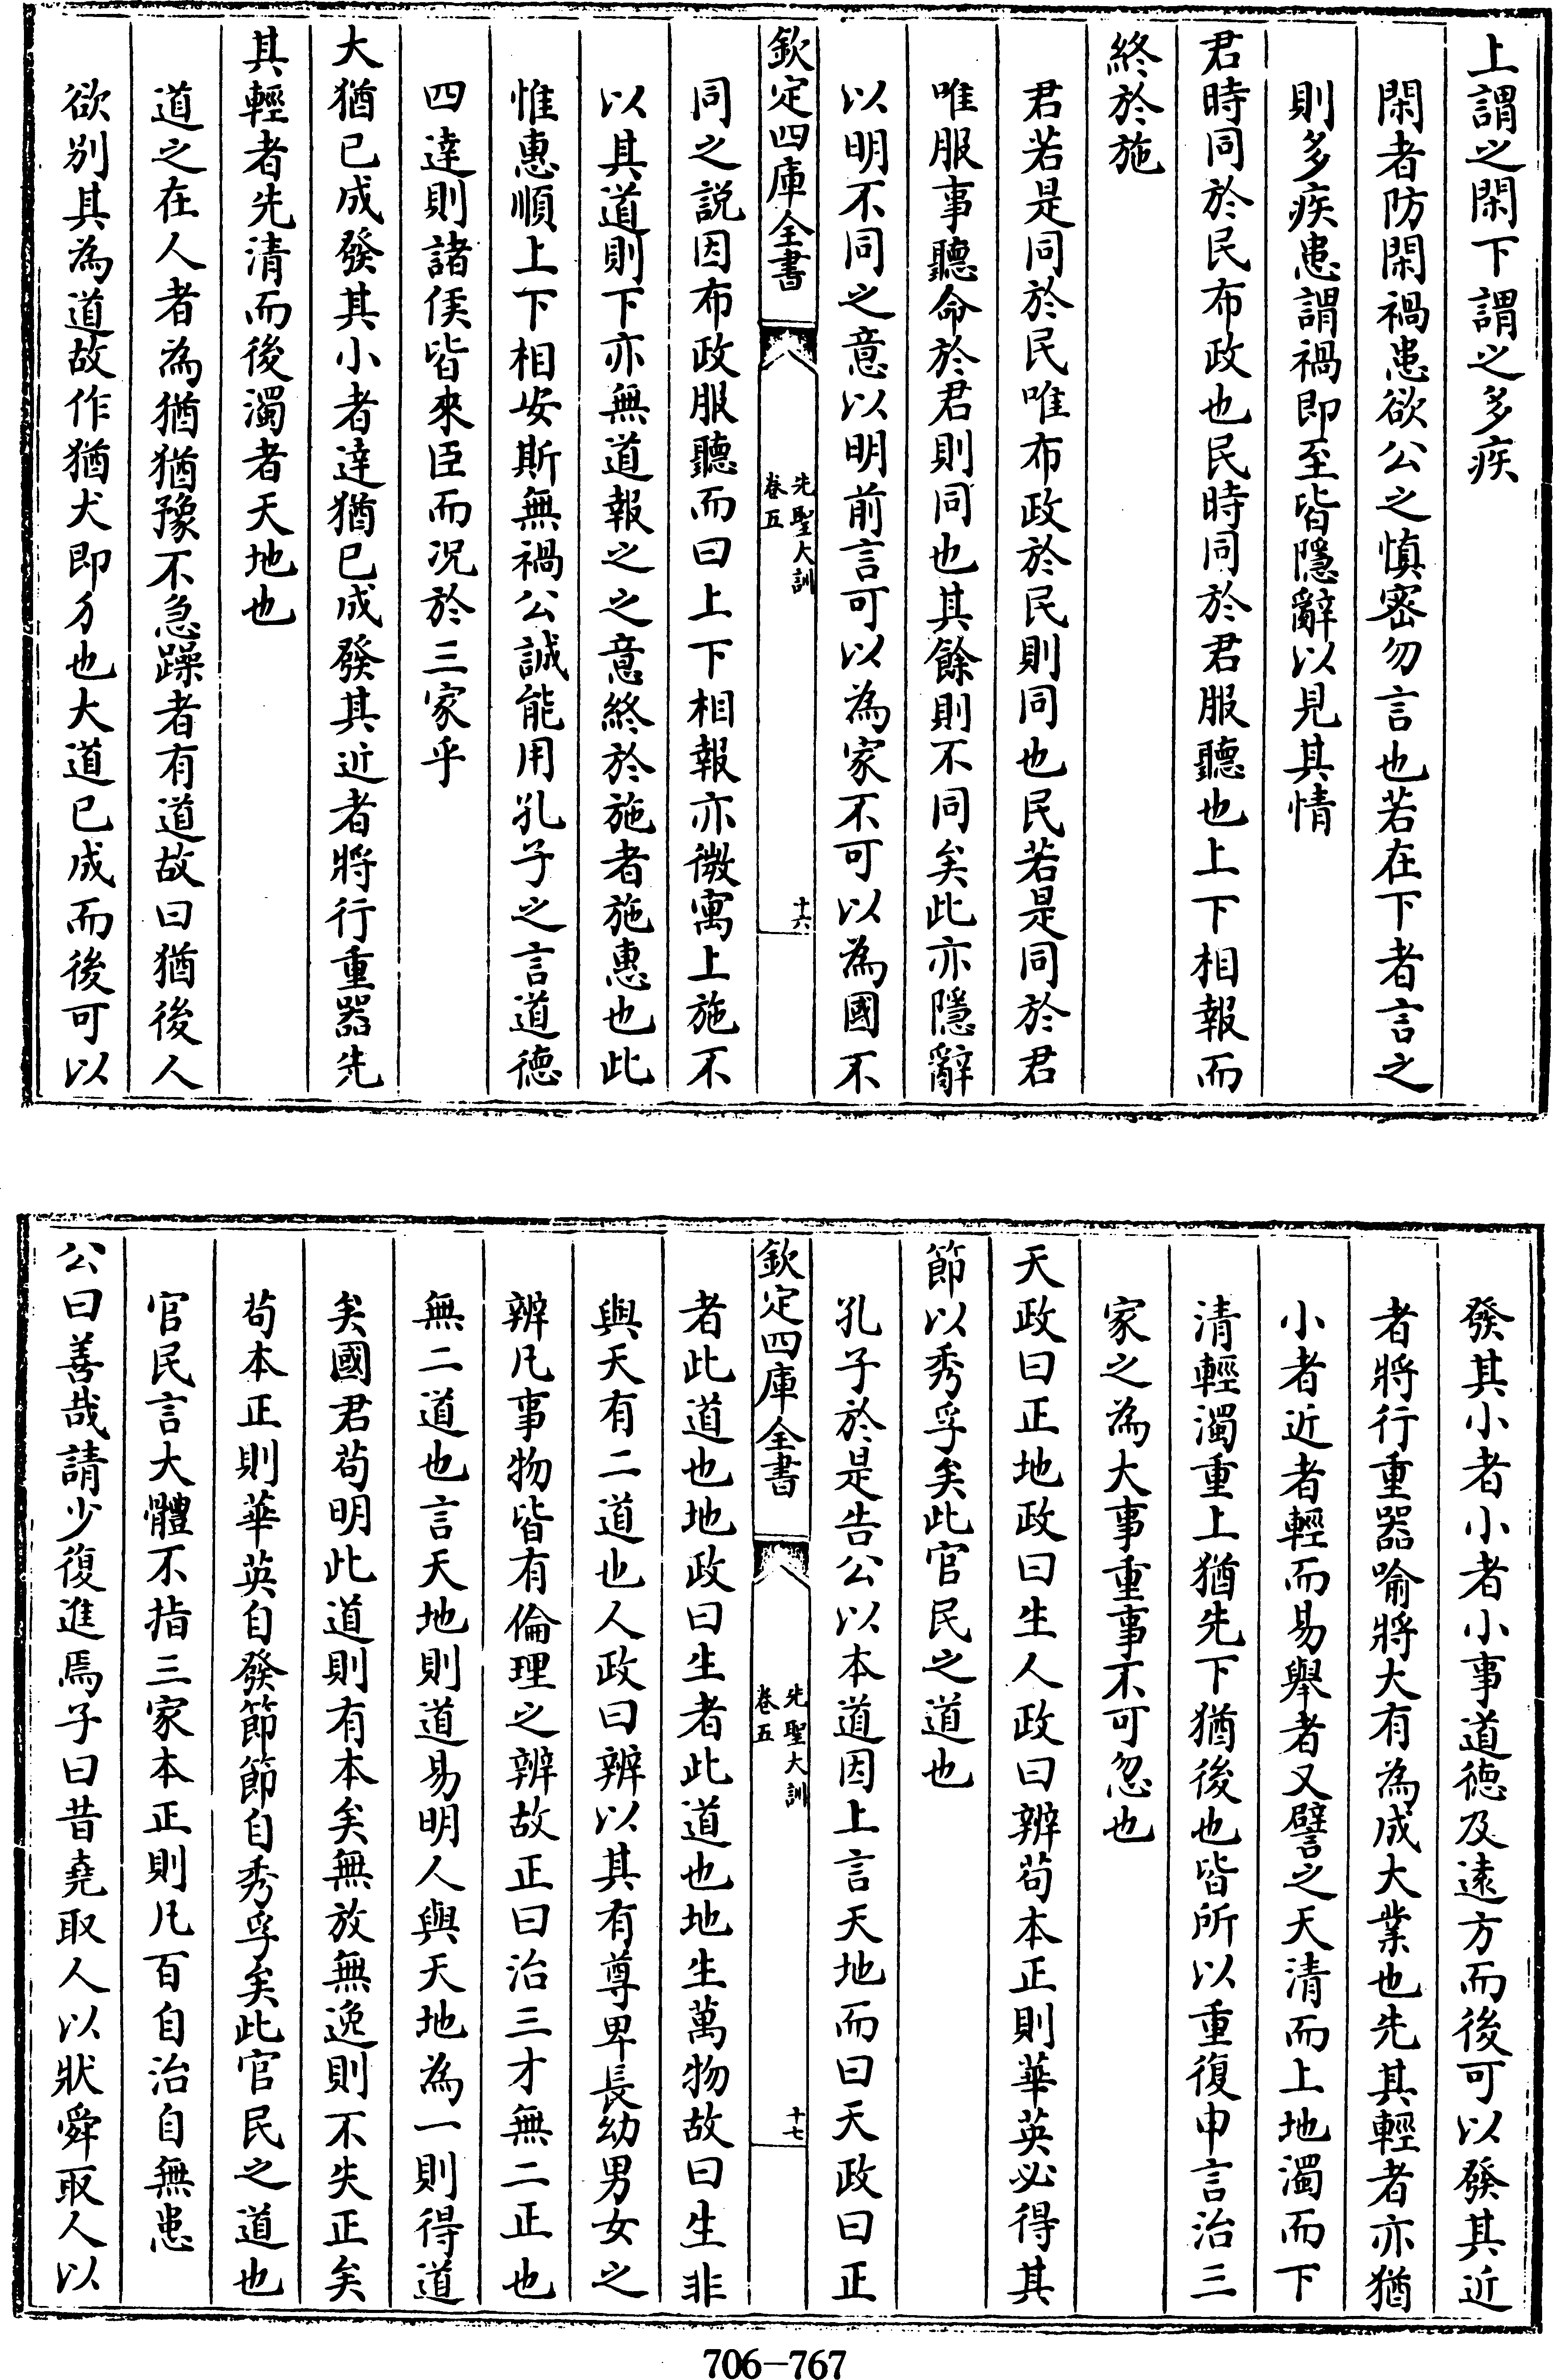 上謂之閑下謂之多疾
閑者防閑禍患欲公之慎密勿言也若在下者言之
則多疾患謂禍即至皆隱辭以見其情
君時同於民布政也民時同於君服聽也上下相報而
終於施
君若是同於民唯布政於民則同也民若是同於君
唯服事聽命於君則同也其餘則不同矣此亦隱辭
以明不同之意以明前言可以為家不可以為國不
欽定四庫全書
先聖大訓
卷五
十六
同之説因布政服聽而曰上下相報亦微寓上施不
以其道則下亦無道報之之意終於施者施惠也此
惟惠順上下相安斯無禍公誠能用孔子之言道德
四達則諸侯皆來臣而况於三家乎
大猶已成發其小者逹猶已成發其近者將行重器先
其輕者先清而後濁者天地也
道之在人者為猶猶豫不急躁者有道故曰猶後人
欲别其為道故作猶犬即犭也大道已成而後可以
發其小者小者小事道德及逺方而後可以發其近
者將行重器喻將大有為成大業也先其輕者亦猶
小者近者輕而易舉者又譬之天清而上地濁而下
清輕濁重上猶先下猶後也皆所以重復申言治三
家之為大事重事不可忽也
天政曰正地政曰生人政曰辨茍本正則華英必得其
節以秀孚矣此官民之道也
孔子於是告公以本道因上言天地而曰天政曰正
欽定四庫全書
先聖大訓
卷五
十七
者此道也地政曰生者此道也地生萬物故曰生非
與天有二道也人政曰辨以其有尊卑長幼男女之
辨凡事物皆有倫理之辨故正曰治三才無二正也
無二道也言天地則道易明人與天地為一則得道
矣國君茍明此道則有本矣無放無逸則不失正矣
茍本正則華英自發節節自秀孚矣此官民之道也
官民言大體不指三家本正則凡百自治自無患
公曰善哉請少復進焉子曰昔堯取人以狀舜取人以
706-767